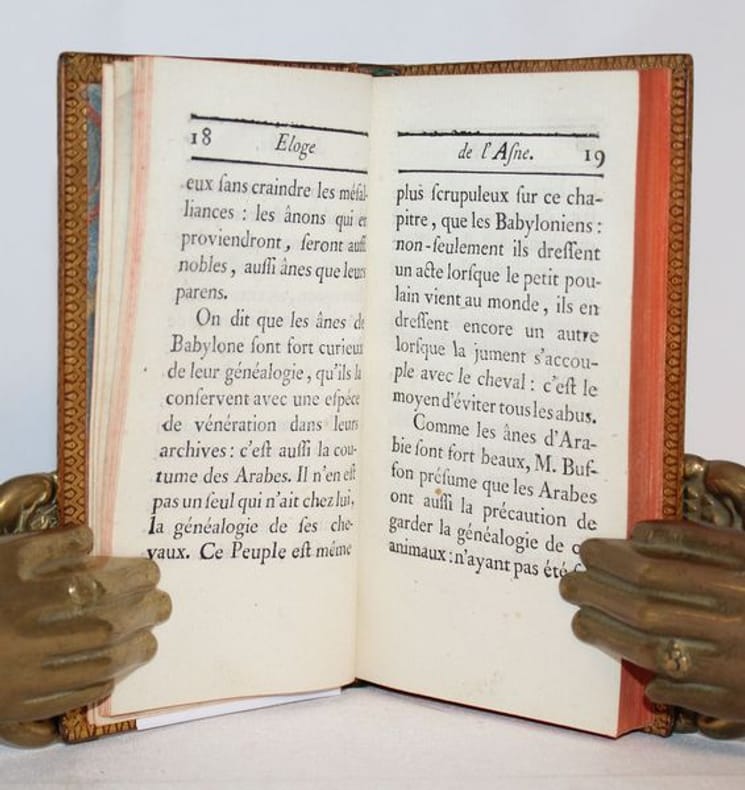 18 Eloge
eux ſans craindre les méſal-
liances : les ânons qui en
proviendront, ſeront auſſi
nobles, auſſi ânes que leurs
parens.
On dit que les ânes de
Babylone ſont fort curieux
de leur généalogie, qu'ils la
conſervent avec une eſpéce
de vénération dans leurs
archives : c'eſt auſſi la cou-
tume des Arabes. Il n'en eſt
pas un ſeul qui n'ait chez lui,
la généalogie de ſes che-
vaux. Ce Peuple eſt même
de l'Aſne. 19
plus ſcrupuleux ſur ce cha-
pitre, que les Babyloniens :
non-ſeulement ils dreſſent
un acte lorſque le petit pou-
lain vient au monde, ils en
dreſſent encore un autre
lorſque la jument s'accou-
ple avec le cheval : c'eſt le
moyen d'éviter tous les abus.
Comme les ânes d'Ara-
bie ſont fort beaux, M. Buf-
fon préſume que les Arabes
ont auſſi la précaution de
garder la généalogie de
animaux : n'ayant pas été